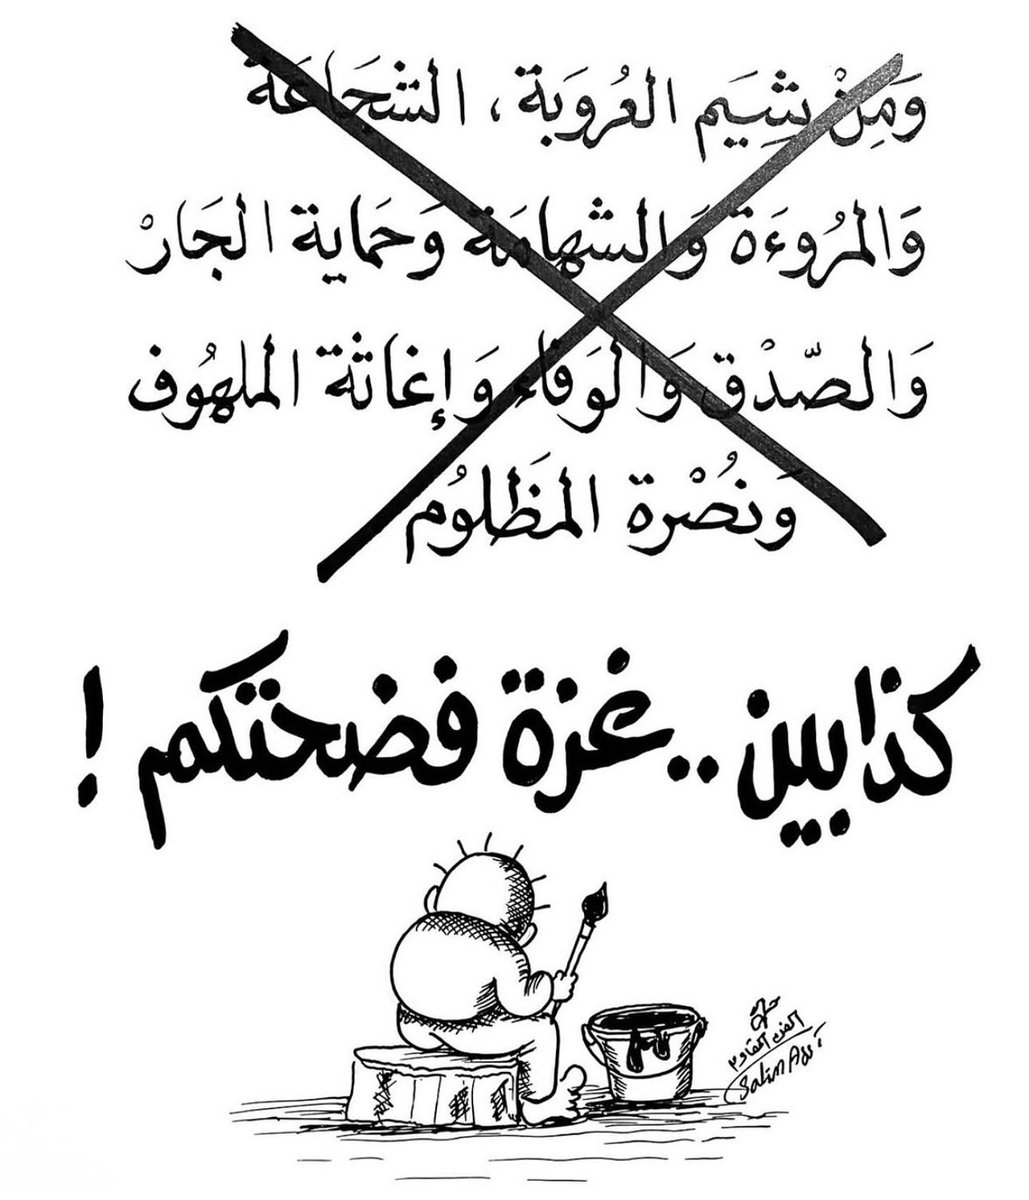 وَمِنْ شِيَم العُروَبَة ، الشَجَاعَة
وَالمرُوءَة وَالشهامَة وَحَماية الجَارْ
وَالصّدْق وَالوَفاء وَإغاثة الملهُوف
وَنصُْرة المظَلوُم
كذابين .. غزة فضحتكم !
الفن المقاوم
Salim Assi